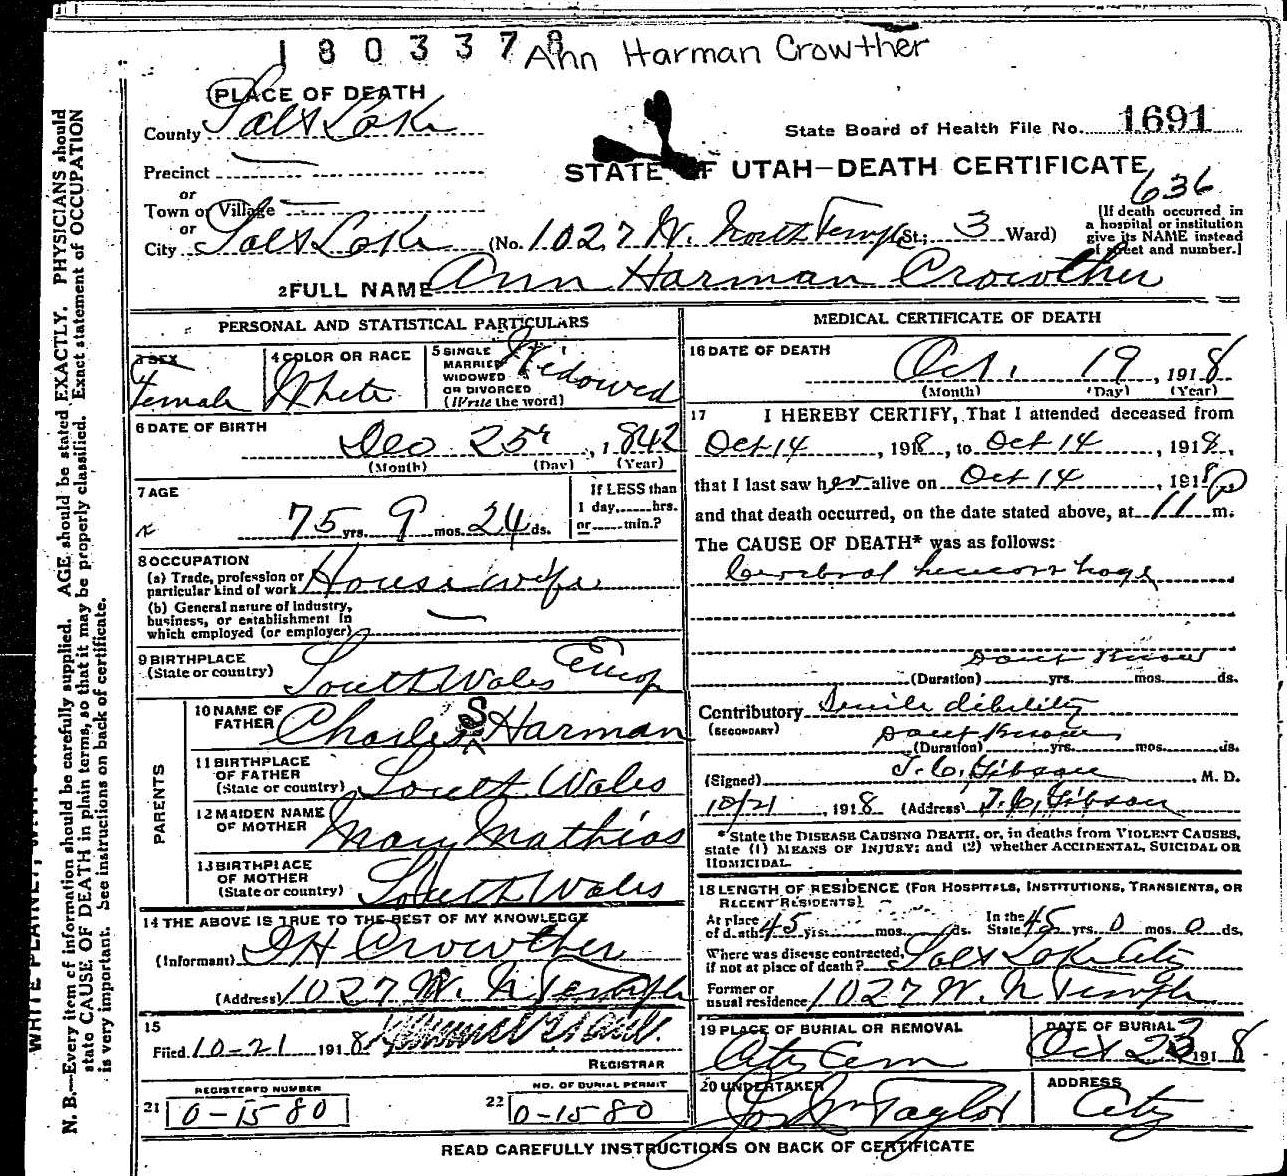 1803378 Ann Harman Crowther
PLACE OF DEATH
County Salt Lake
State Board of Health File No. 1691
Precinct
STATE OF UTAH—DEATH CERTIFICATE
or
Town or Village
636
or
City Salt Lake (No. 1027 W. North Temple St.; 3 Ward)
[If death occurred in a hospital or institution give its NAME instead of street and number.]
2 FULL NAME Ann Harman Crowther
PERSONAL AND STATISTICAL PARTICULARS
3 SEX
Female
4 COLOR OR RACE
White
5 SINGLE
MARRIED
WIDOWED
OR DIVORCED
(Write the word)
Widowed
6 DATE OF BIRTH
Dec 25, 1842
(Month) (Day) (Year)
7 AGE
75 yrs. 9 mos. 24 ds.
If LESS than
1 day, hrs.
or min.?
8 OCCUPATION
(a) Trade, profession or
particular kind of work Housewife
(b) General nature of industry,
business, or establishment in
which employed (or employer)
9 BIRTHPLACE
(State or country) South Wales Europ
PARENTS
10 NAME OF
FATHER Charles S Harman
11 BIRTHPLACE
OF FATHER
(State or country) South Wales
12 MAIDEN NAME
OF MOTHER Mary Mathias
13 BIRTHPLACE
OF MOTHER
(State or country) South Wales
14 THE ABOVE IS TRUE TO THE BEST OF MY KNOWLEDGE
(Informant) Crowther
(Address) 1027 W. N Temple
15
Filed 10-21 1918
REGISTRAR
REGISTERED NUMBER
21 0-1580
NO. OF BURIAL PERMIT
22 0-1580
MEDICAL CERTIFICATE OF DEATH
16 DATE OF DEATH
Oct. 19, 1918
(Month) (Day) (Year)
17 I HEREBY CERTIFY, That I attended deceased from
Oct 14, 1918, to Oct 14 1918,
that I last saw her alive on Oct 14, 1918
and that death occurred, on the date stated above, at 11 P m.
The CAUSE OF DEATH* was as follows:
Cerebral hemorrhage
Dont Know
(Duration) yrs. mos. ds.
Contributory Senile debility
(SECONDARY) Dont Know
(Duration) yrs. mos. ds.
(Signed) T. C. Gibson, M. D.
10/21, 1918 (Address) T. C. Gibson
*State the DISEASE CAUSING DEATH, or, in deaths from VIOLENT CAUSES,
state (1) MEANS OF INJURY; and (2) whether ACCIDENTAL, SUICIDAL OR
HOMICIDAL.
18 LENGTH OF RESIDENCE (FOR HOSPITALS, INSTITUTIONS, TRANSIENTS, OR
RECENT RESIDENTS)
At place of death 45 yrs. mos. ds. In the State 45 yrs. 0 mos. 0 ds.
Where was disease contracted,
if not at place of death? Salt Lake City
Former or
usual residence 1027 W. N Temple
19 PLACE OF BURIAL OR REMOVAL
City Cem
DATE OF BURIAL
Oct 23 1918
20 UNDERTAKER
Taylor
ADDRESS
City
READ CAREFULLY INSTRUCTIONS ON BACK OF CERTIFICATE
N. B.—Every item of information should be carefully supplied. AGE should be stated EXACTLY. PHYSICIANS should
state CAUSE OF DEATH in plain terms, so that it may be properly classified. Exact statement of OCCUPATION
is very important. See instructions on back of certificate.